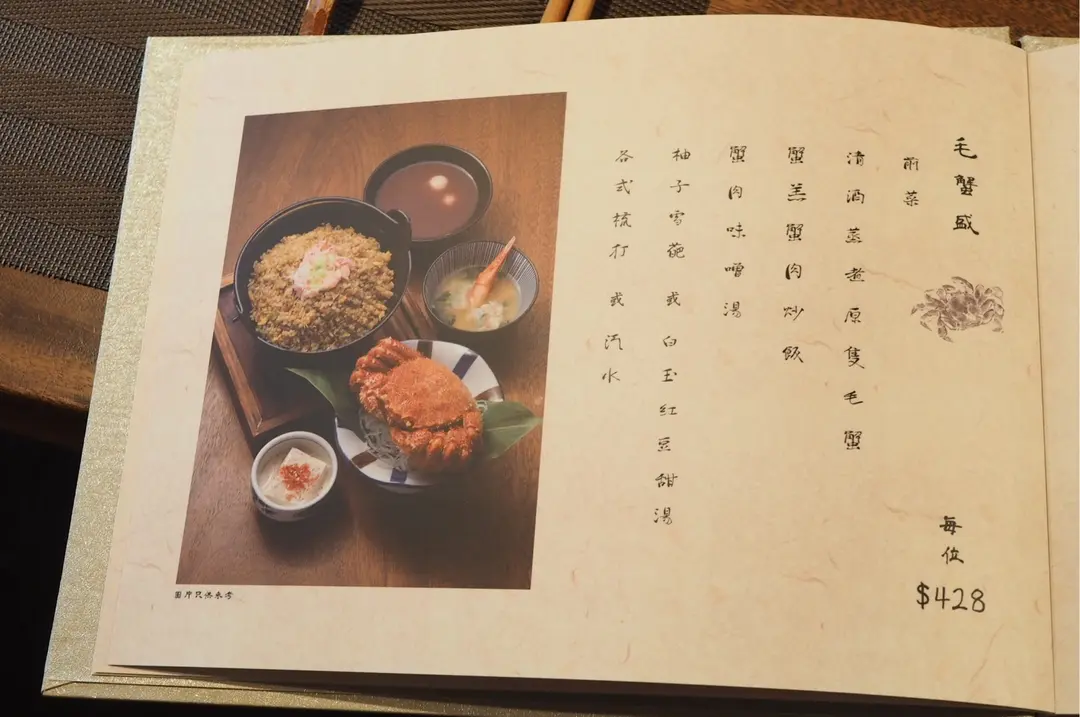 毛蟹盛
前菜
清酒蒸煮原隻毛蟹
蟹羔蟹肉炒飯
蟹肉味噌湯
柚子雪葩 或 白玉紅豆甜湯
各式梳打 或 汽水
每位
$428
圖片只供參考